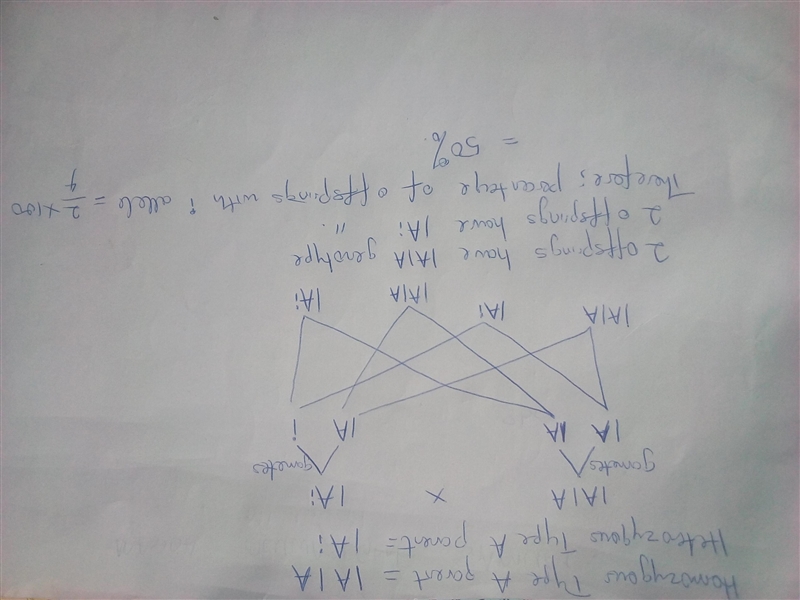 Homozygous Type A parent = IAIA
Heterozygous Type A parent = IAi
IAIA × IAi
gametes gametes
IA IA IA i
IAIA IAi IAIA IAi
2 offsprings have IAIA genotype
2 offsprings have IAi "
Therefore; percentage of offsprings with i allele = 2/4 × 100
= 50%